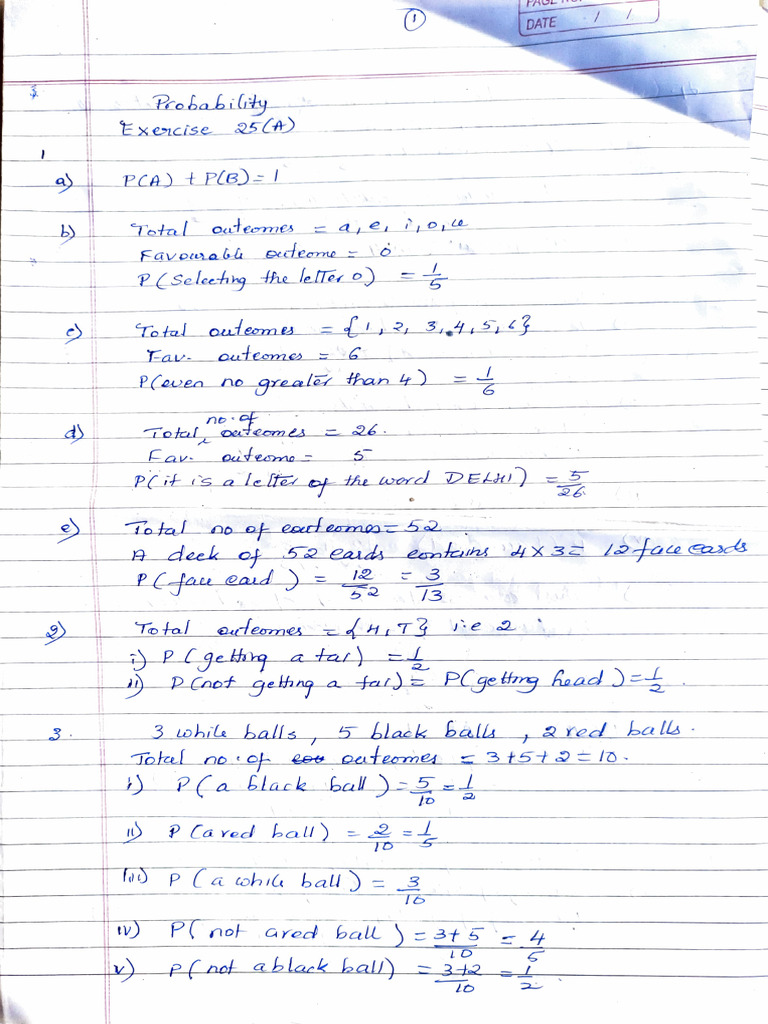 ①
PAGE NO.
DATE / /
Probability
Exercise 25(A)
1
a) P(A) + P(B) = 1
b) Total outcomes = a, e, i, o, u
Favourable outcome = o
P(Selecting the letter o) = 1/5
c) Total outcomes = {1, 2, 3, 4, 5, 6}
Fav. outcomes = 6
P(even no greater than 4) = 1/6
d) Total no. of outcomes = 26.
Fav. outcome = 5
P(it is a letter of the word DELHI) = 5/26.
e) Total no of outcomes = 52
A deck of 52 cards contains 4 x 3 = 12 face cards
P(face card) = 12/52 = 3/13
2) Total outcomes = {H, T} i.e 2
i) P(getting a tai) = 1/2
ii) P(not getting a tai) = P(getting head) = 1/2.
3. 3 white balls, 5 black balls, 2 red balls.
Total no. of outcomes = 3+5+2 = 10.
i) P(a black ball) = 5/10 = 1/2
ii) P(a red ball) = 2/10 = 1/5
iii) P(a white ball) = 3/10
iv) P(not a red ball) = 3+5/10 = 4/5
v) P(not a black ball) = 3+2/10 = 1/2